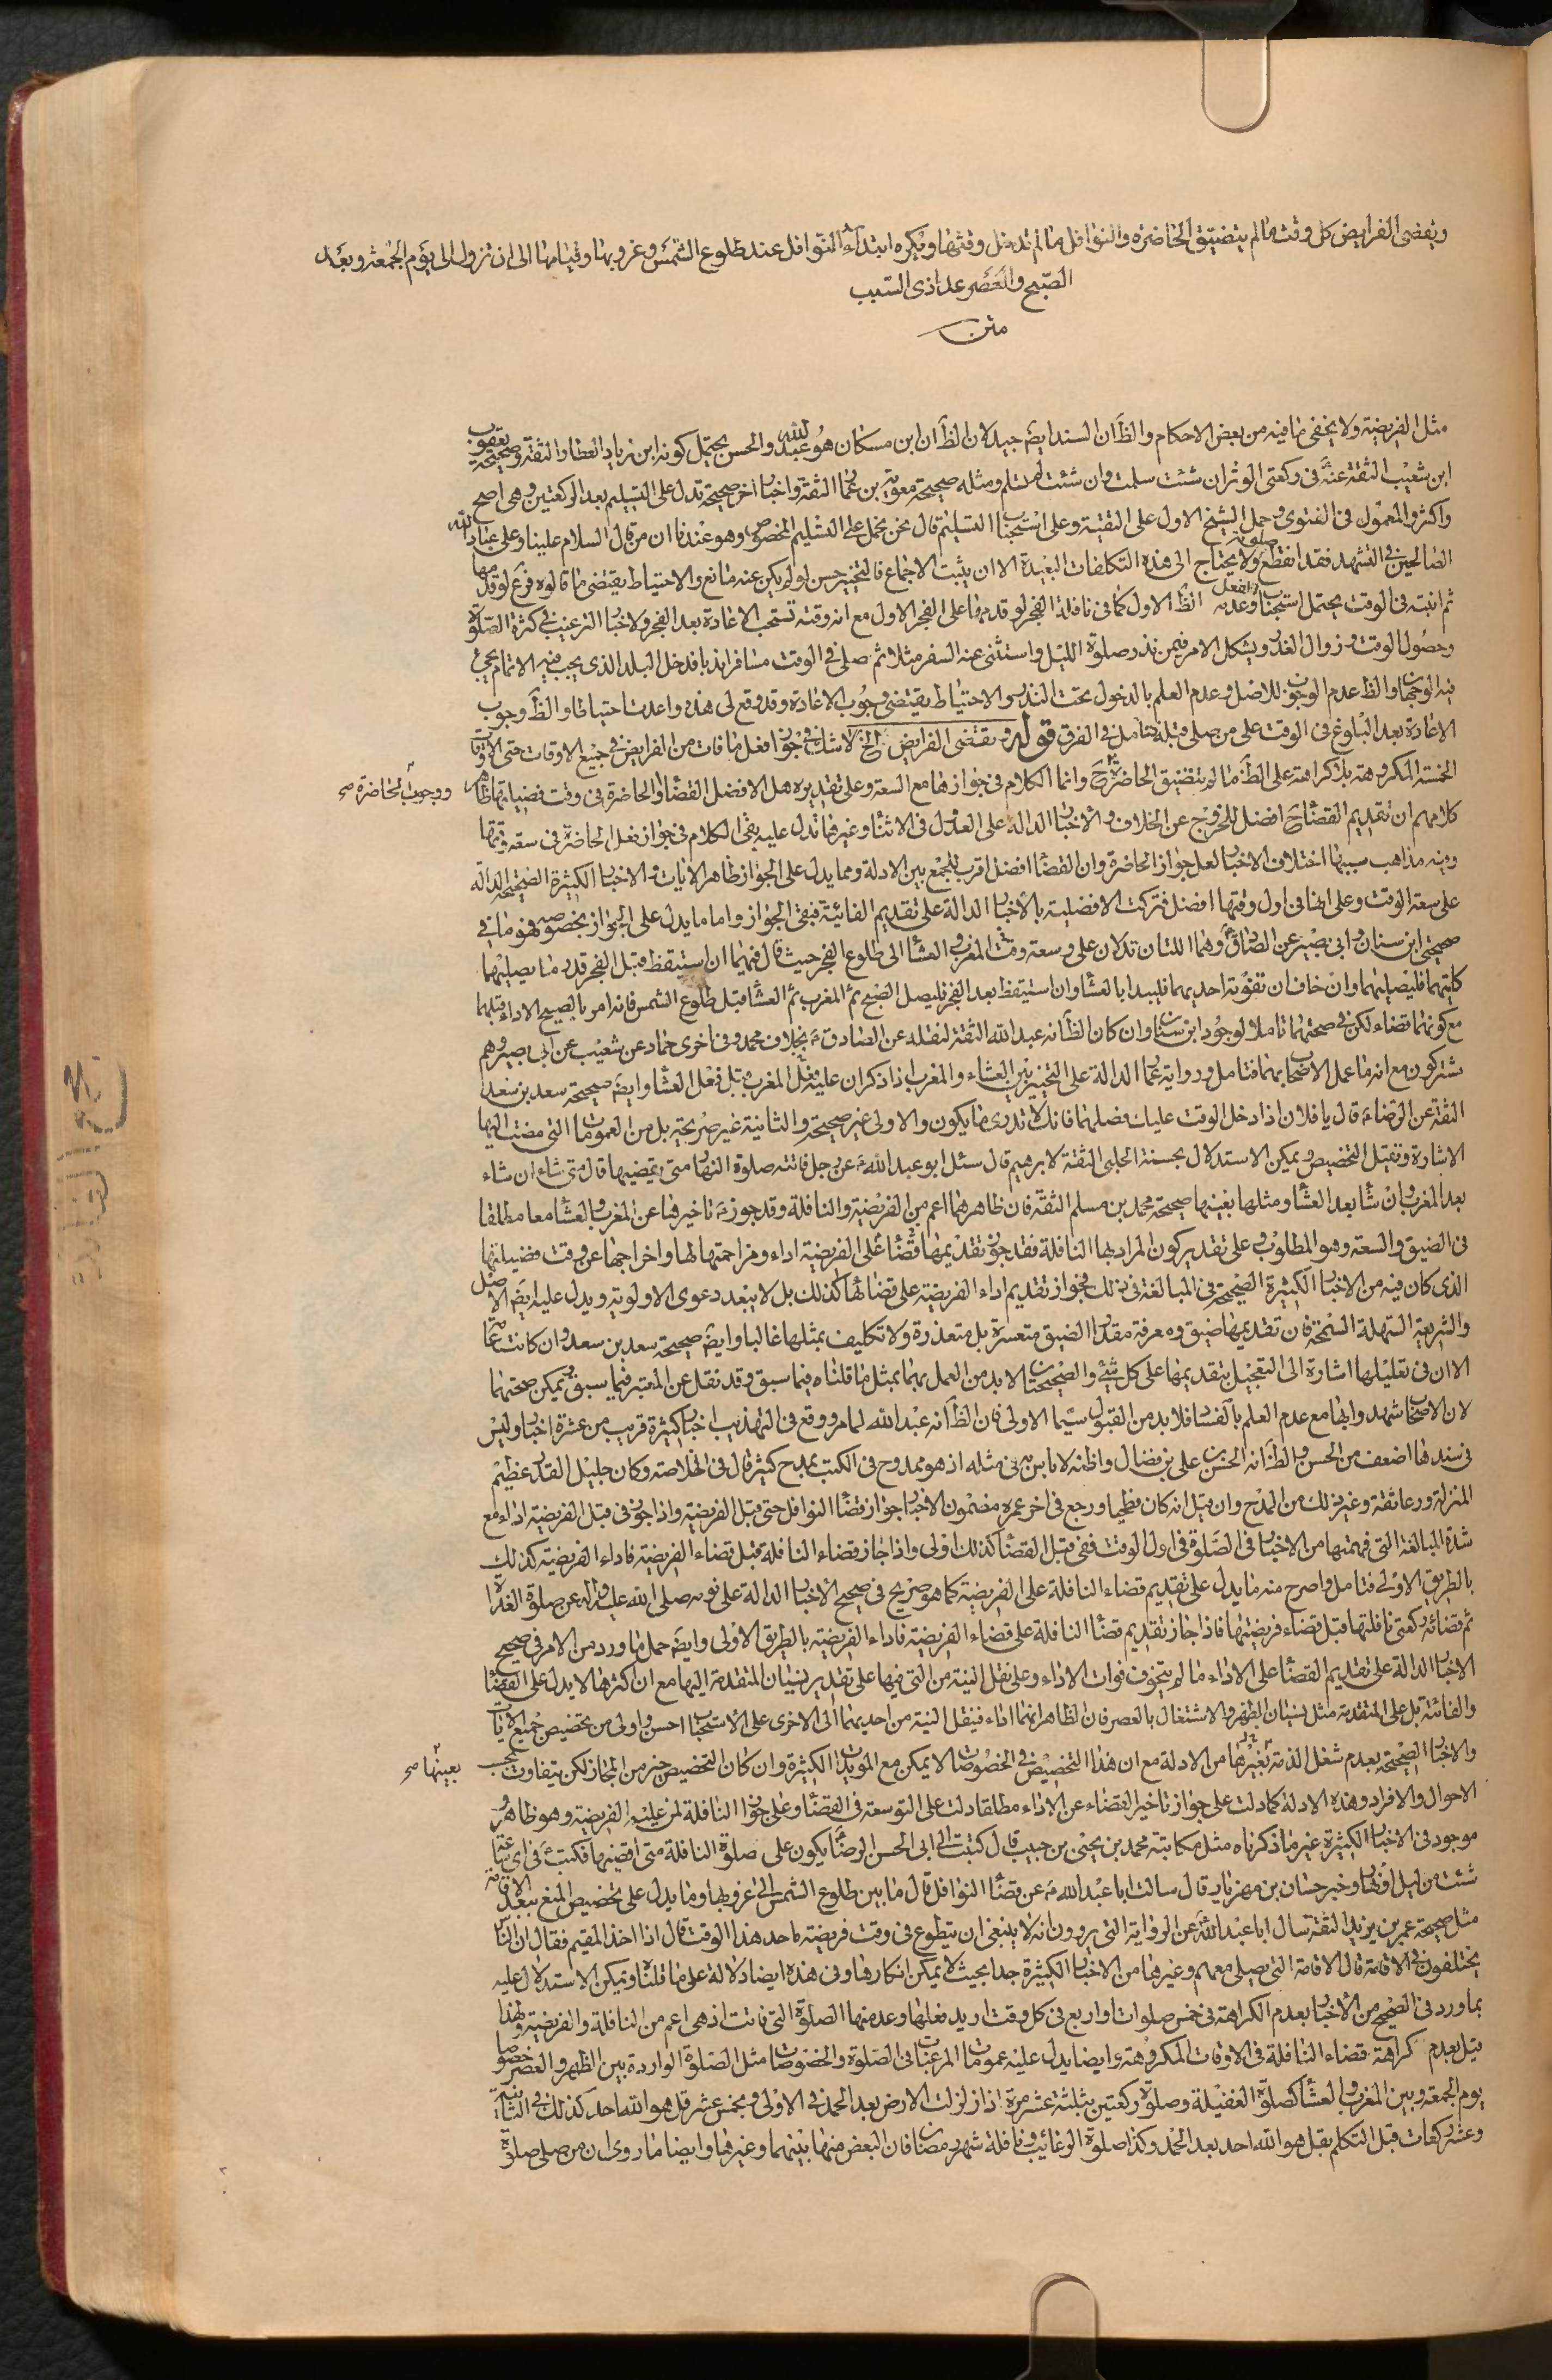 ويقضى الفرايض كل وقت ما لم يتضيق الحاضرة والنوافل ما لم تدخل وقتها ويكره ابتداء النوافل عند طلوع الشمس وغروبها وقيامها الى ان تزول الى يوم الجمعة وبعد
الصبح والعصر عدا ذى السبب
متن
مثل الفريضة ولا يخفى ما فيه من بعض الاحكام والظ ان السند ايضا جيد لان الظ ان ابن مسكان هو عبد الله والحسن يحتمل كونه ابن زياد العطار الثقة وصحيحة يعقوب
ابن شعيب الثقة عنه فى ركعتى الوتر ان شئت سلمت وان شئت لم تسلم ومثله صحيحة معوية بن عمار الثقة واخبار اخر صحيحة تدل على التسليم بعد الركعتين وهى اصح
واكثر والمعمول فى الفتوى وحمل الشيخ الاول على التقية وعلى استحباب التسليم قال نحن نحمل على التسليم المخصوص وهو عندنا ان من قال السلام علينا وعلى عباد الله
الصالحين فى التشهد فقد انقطع صلوته ولا يحتاج الى هذه التكلفات البعيدة الا ان يثبت الاجماع فالتخيير حسن لو لم يكن عنه مانع والاحتياط يقتضى ما قالوه فرع لو قدمها
ثم انتبه فى الوقت يحتمل استحباب الفعل وعدمه الظ الاول كما فى نافلة الفجر لو قدمها على الفجر الاول مع انه وقته تستحب الاعادة بعد الفجر ولاخبار الترغيب فى كثرة الصلوة
وحصول الوقت وزوال العذر ويشكل الامر فيمن نذر صلوة الليل واستثنى عنه السفر مثلا ثم صلى فى الوقت مسافرا نذبا فدخل البلد الذى يجب فيه الاتمام يجئ
فيه الوجهان والظ عدم الوجوب للاصل وعدم العلم بالدخول تحت النذر والاحتياط يقتضى وجوب الاعادة وقد وقع لى هذه واعدت احتياطا والظ وجوب
الاعادة بعد البلوغ فى الوقت على من صلى قبله فتامل فى الفرق قوله ويقتضى الفرايض الخ لا شك فى جواز فعل ما فات من الفرايض فى جميع الاوقات حتى الاوقات
الخمسة المكروهة بلا كراهة على الظ ما لم يتضيق الحاضرة ح وانما الكلام فى جوازها مع السعة وعلى تقديره هل الافضل القضاء او الحاضرة فى وقت فضيلتها ظاهر
ووجوب الحاضرة صح
كلامهم ان تقديم القضاء ح افضل للخروج عن الخلاف والاخبار الدالة على العدول فى الاثناء وغيرها تدل عليه بقى الكلام فى جواز فعل الحاضرة فى سعة وقتها
وفيه مذاهب سببها اختلاف الاخبار لعل جواز الحاضرة وان القضاء افضل اقرب للجمع بين الادلة ومما يدل على الجواز ظاهر الايات والاخبار الكثيرة الصحيحة الدالة
على سعة الوقت وعلى انها فى اول وقتها افضل فتركت الافضلية بالاخبار الدالة على تقديم الفائتة فبقى الجواز واما ما يدل على الجواز بخصوصه فهو ما فى
صحيحتى ابن سنان وابى بصير عن الصادق وهما اللتان تدلان على وسعة وقت المغرب والعشاء الى طلوع الفجر حيث قال فيهما ان استيقظ قبل الفجر قدر ما يصليهما
كلتيهما فليصليهما وان خاف ان تفوته احديهما فليبدا بالعشاء وان استيقظ بعد الفجر فليصل الصبح ثم المغرب ثم العشاء قبل طلوع الشمس فانه امر بالصبح الاداء قبلهما
مع كونهما قضاء لكن فى صحتهما تاملا لوجود ابن سنان وان كان الظ انه عبد الله الثقة لنقله عن الصادق ع بخلاف محمد وفى اخرى حماد عن شعيب عن ابى بصير وهم
مشتركون مع انه ما عمل الاصحاب بهما فتامل ورواية عمار الدالة على التخيير بين العشاء والمغرب اذا ذكر ان عليه فعل المغرب قبل فعل العشاء وايضا صحيحة سعد بن سعد
الثقة عن الرضاء ع قال يا فلان اذا دخل الوقت عليك فصلهما فانك لا تدرى ما يكون والاولى غير صحيحة والثانية غير صريحة بل من العمومات التى مضت اليها
الاشارة وتقبل التخصيص ويمكن الاستدلال بحسنة الحلبى الثقة لابرهيم قال سئل ابو عبد الله ع عن رجل فاتته صلوة النهار متى يقضيها قال متى شاء ان شاء
بعد المغرب وان شاء بعد العشاء ومثلها بعينها صحيحة محمد بن مسلم الثقة فان ظاهرهما اعم من الفريضة والنافلة وقد جوز ع تاخيرها عن المغرب والعشاء معا مطلقا
فى الضيق والسعة وهو المطلوب وعلى تقدير كون المراد بها النافلة فقد جوز تقديمها قضاء على الفريضة اداء ومزاحمتها لها واخراجها عن وقت فضيلتها
الذى كان فيه من الاخبار الكثيرة الصحيحة فى المبالغة فى ذلك فجواز تقديم اداء الفريضة على قضائها كذلك بل لا يبعد دعوى الاولوية ويدل عليه ايضا الاصل
والشريعة السهلة السمحة فان تقديمها ضيق ومعرفة مقدار الضيق متعسرة بل متعذرة ولا تكليف بمثلها غالبا وايضا صحيحة سعد بن سعد وان كانت عامة
الا ان فى تعليلها اشارة الى التعجيل بتقديمها على كل شئ والصحيحتان لا بد من العمل بهما بمثل ما قلناه فيما سبق وقد نقل عن المعتبر فيما سبق ويمكن صحتهما
لان الاصحاب شهدوا بها مع عدم العلم بالفساد فلا بد من القبول سيما الاولى فان الظ انه عبد الله لما مر ووقع فى التهذيب اخبار كثيرة قريب من عشرة اخبار وليس
فى سندها اضعف من الحسن والظ انه الحسن بن على بن فضال واظنه لا باس به فى مثله اذ هو ممدوح فى الكتب بمدح كثير قال فى الخلاصة وكان جليل القدر عظيم
المنزلة ورعا ثقة وغير ذلك من المدح وان قيل انه كان فطحيا ورجع فى اخر عمره مضمون الاخبار جواز قضاء النوافل حتى قبل الفريضة واذا جوز فى قبل الفريضة اداء مع
شدة المبالغة التى فهمتها من الاخبار فى الصلوة فى اول الوقت ففى قبل القضاء كذلك اولى واذا جاز قضاء النافلة قبل قضاء الفريضة فاداء الفريضة كذلك
بالطريق الاولى فتامل واصرح منه ما يدل على تقديم قضاء النافلة على الفريضة كما هو صريح فى صحيح الاخبار الدالة على نومه صلى الله عليه واله عن صلوة الغداة
ثم قضائه ركعتى نافلتها قبل قضاء فريضتها فاذا جاز تقديم قضاء النافلة على قضاء الفريضة فاداء الفريضة بالطريق الاولى وايضا حمل ما ورد من الامر فى صحيح
الاخبار الدالة على تقديم القضاء على الاداء ما لم يتخوف فوات الاداء وعلى نقل النية من التى فيها على تقدير نسيان المتقدمة اليها مع ان اكثرها لا يدل على القضاء
والفائتة بل على المتقدمة مثل نسيان الظهر والاشتغال بالعصر فان الظاهر انهما اداء فينقل النية من احديهما الى الاخرى على الاستحباب احسن واولى من تخصيص جميع الايات
والاخبار الصحيحة بعدم شغل الذمة بغيرها من الادلة مع ان هذا التخصيص فى الخصوصات لا يمكن مع المويدات الكثيرة وان كان التخصيص خير من المجاز لكن يتفاوت بحسب
بعينها صح
الاحوال والافراد وهذه الادلة كما دلت على جواز تاخير القضاء عن الاداء مطلقا دلت على التوسعة فى القضاء وعلى جواز النافلة لمن عليه الفريضة وهو ظاهر و
موجود فى الاخبار الكثيرة غير ما ذكرناه مثل مكاتبة محمد بن يحيى بن حبيب قال كتبت الى ابى الحسن الرضا يكون على صلوة النافلة متى اقضيها فكتب ع فى اى ساعة
شئت من ليل او نهار وخبر حسان بن مهزياد قال سالت ابا عبد الله ع عن قضاء النوافل قال ما بين طلوع الشمس الى غروبها وما يدل على تخصيص المنع ببعد الاقامة
مثل صحيحة عمر بن يزيد الثقة سال ابا عبد الله ع عن الرواية التى يروون انه لا ينبغى ان يتطوع فى وقت فريضة ما حد هذا الوقت قال اذا اخذ المقيم فقال ان الناس
يختلفون فى الاقامة قال الاقامة التى يصلى معهم وغيرها من الاخبار الكثيرة جدا بحيث لا يمكن انكارها وفى هذه ايضا دلالة على ما قلناه ويمكن الاستدلال عليه
بما ورد فى الصحيح من الاخبار بعدم الكراهة فى خمس صلوات او اربع فى كل وقت اريد فعلها وعد منها الصلوة التى فاتت اذ هى اعم من النافلة والفريضة ولهذا
قيل بعدم كراهة قضاء النافلة فى الاوقات المكروهة وايضا يدل عليه عمومات المرغبات فى الصلوة والخصوصات مثل الصلوة الواردة بين الظهر والعصر خصوصا
يوم الجمعة وبين المغرب والعشاء كصلوة الغفيلة وصلوة ركعتين بثلثة عشر مرة اذا زلزلت الارض بعد الحمد فى الاولى وبخمس عشر قل هو الله احد كذلك فى الثانية
وعشر ركعات قبل التكلم بقل هو الله احد بعد الحمد وكذا صلوة الرغائب ونافلة شهر رمضان فان البعض منها بينهما وغيرها وايضا ما روى ان من صلى صلوة